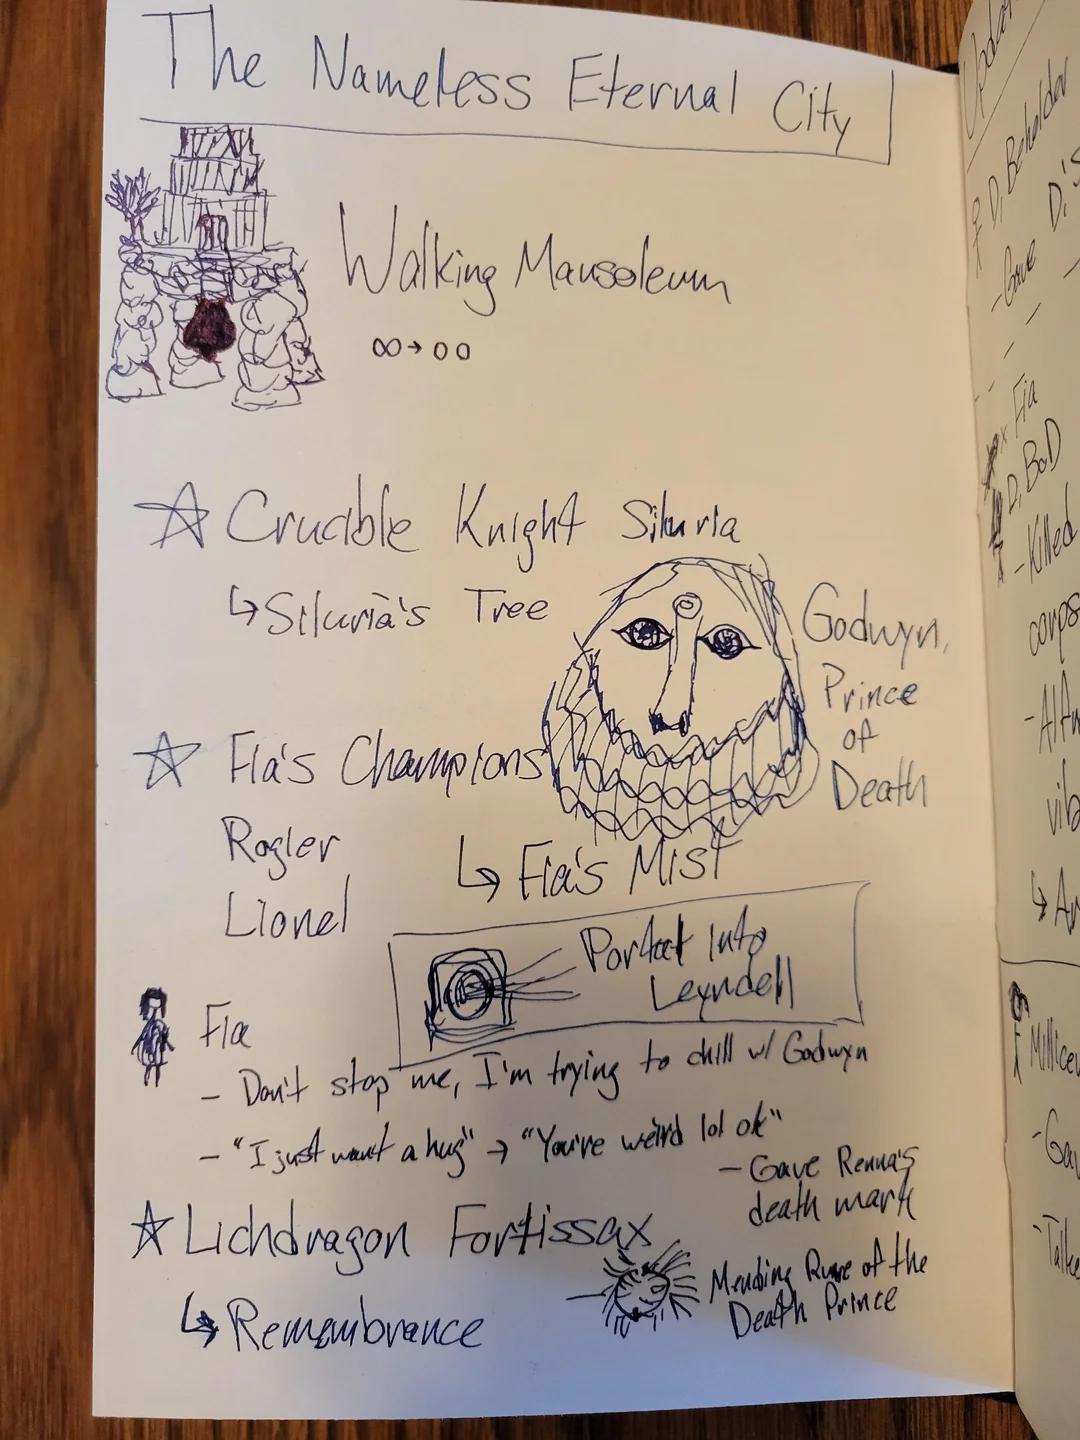 The Nameless Eternal City
Walking Mausoleum
∞→00
☆ Crucible Knight Siluria
↳Siluria's Tree
Godwyn,
Prince
of
Death
☆ Fia's Champions
Rogier
Lionel
↳ Fia's Mist
Portal Into
Leyndell
Fia
- Don't stop me, I'm trying to chill w/ Godwyn
- "I just want a hug" → "You're weird lol ok"
- Gave Renna's
death mark
☆ Lichdragon Fortissax
↳ Remembrance
Mending Rune of the
Death Prince
D, Beholder
D's
- Gave
Fia
D, BoD
- Killed